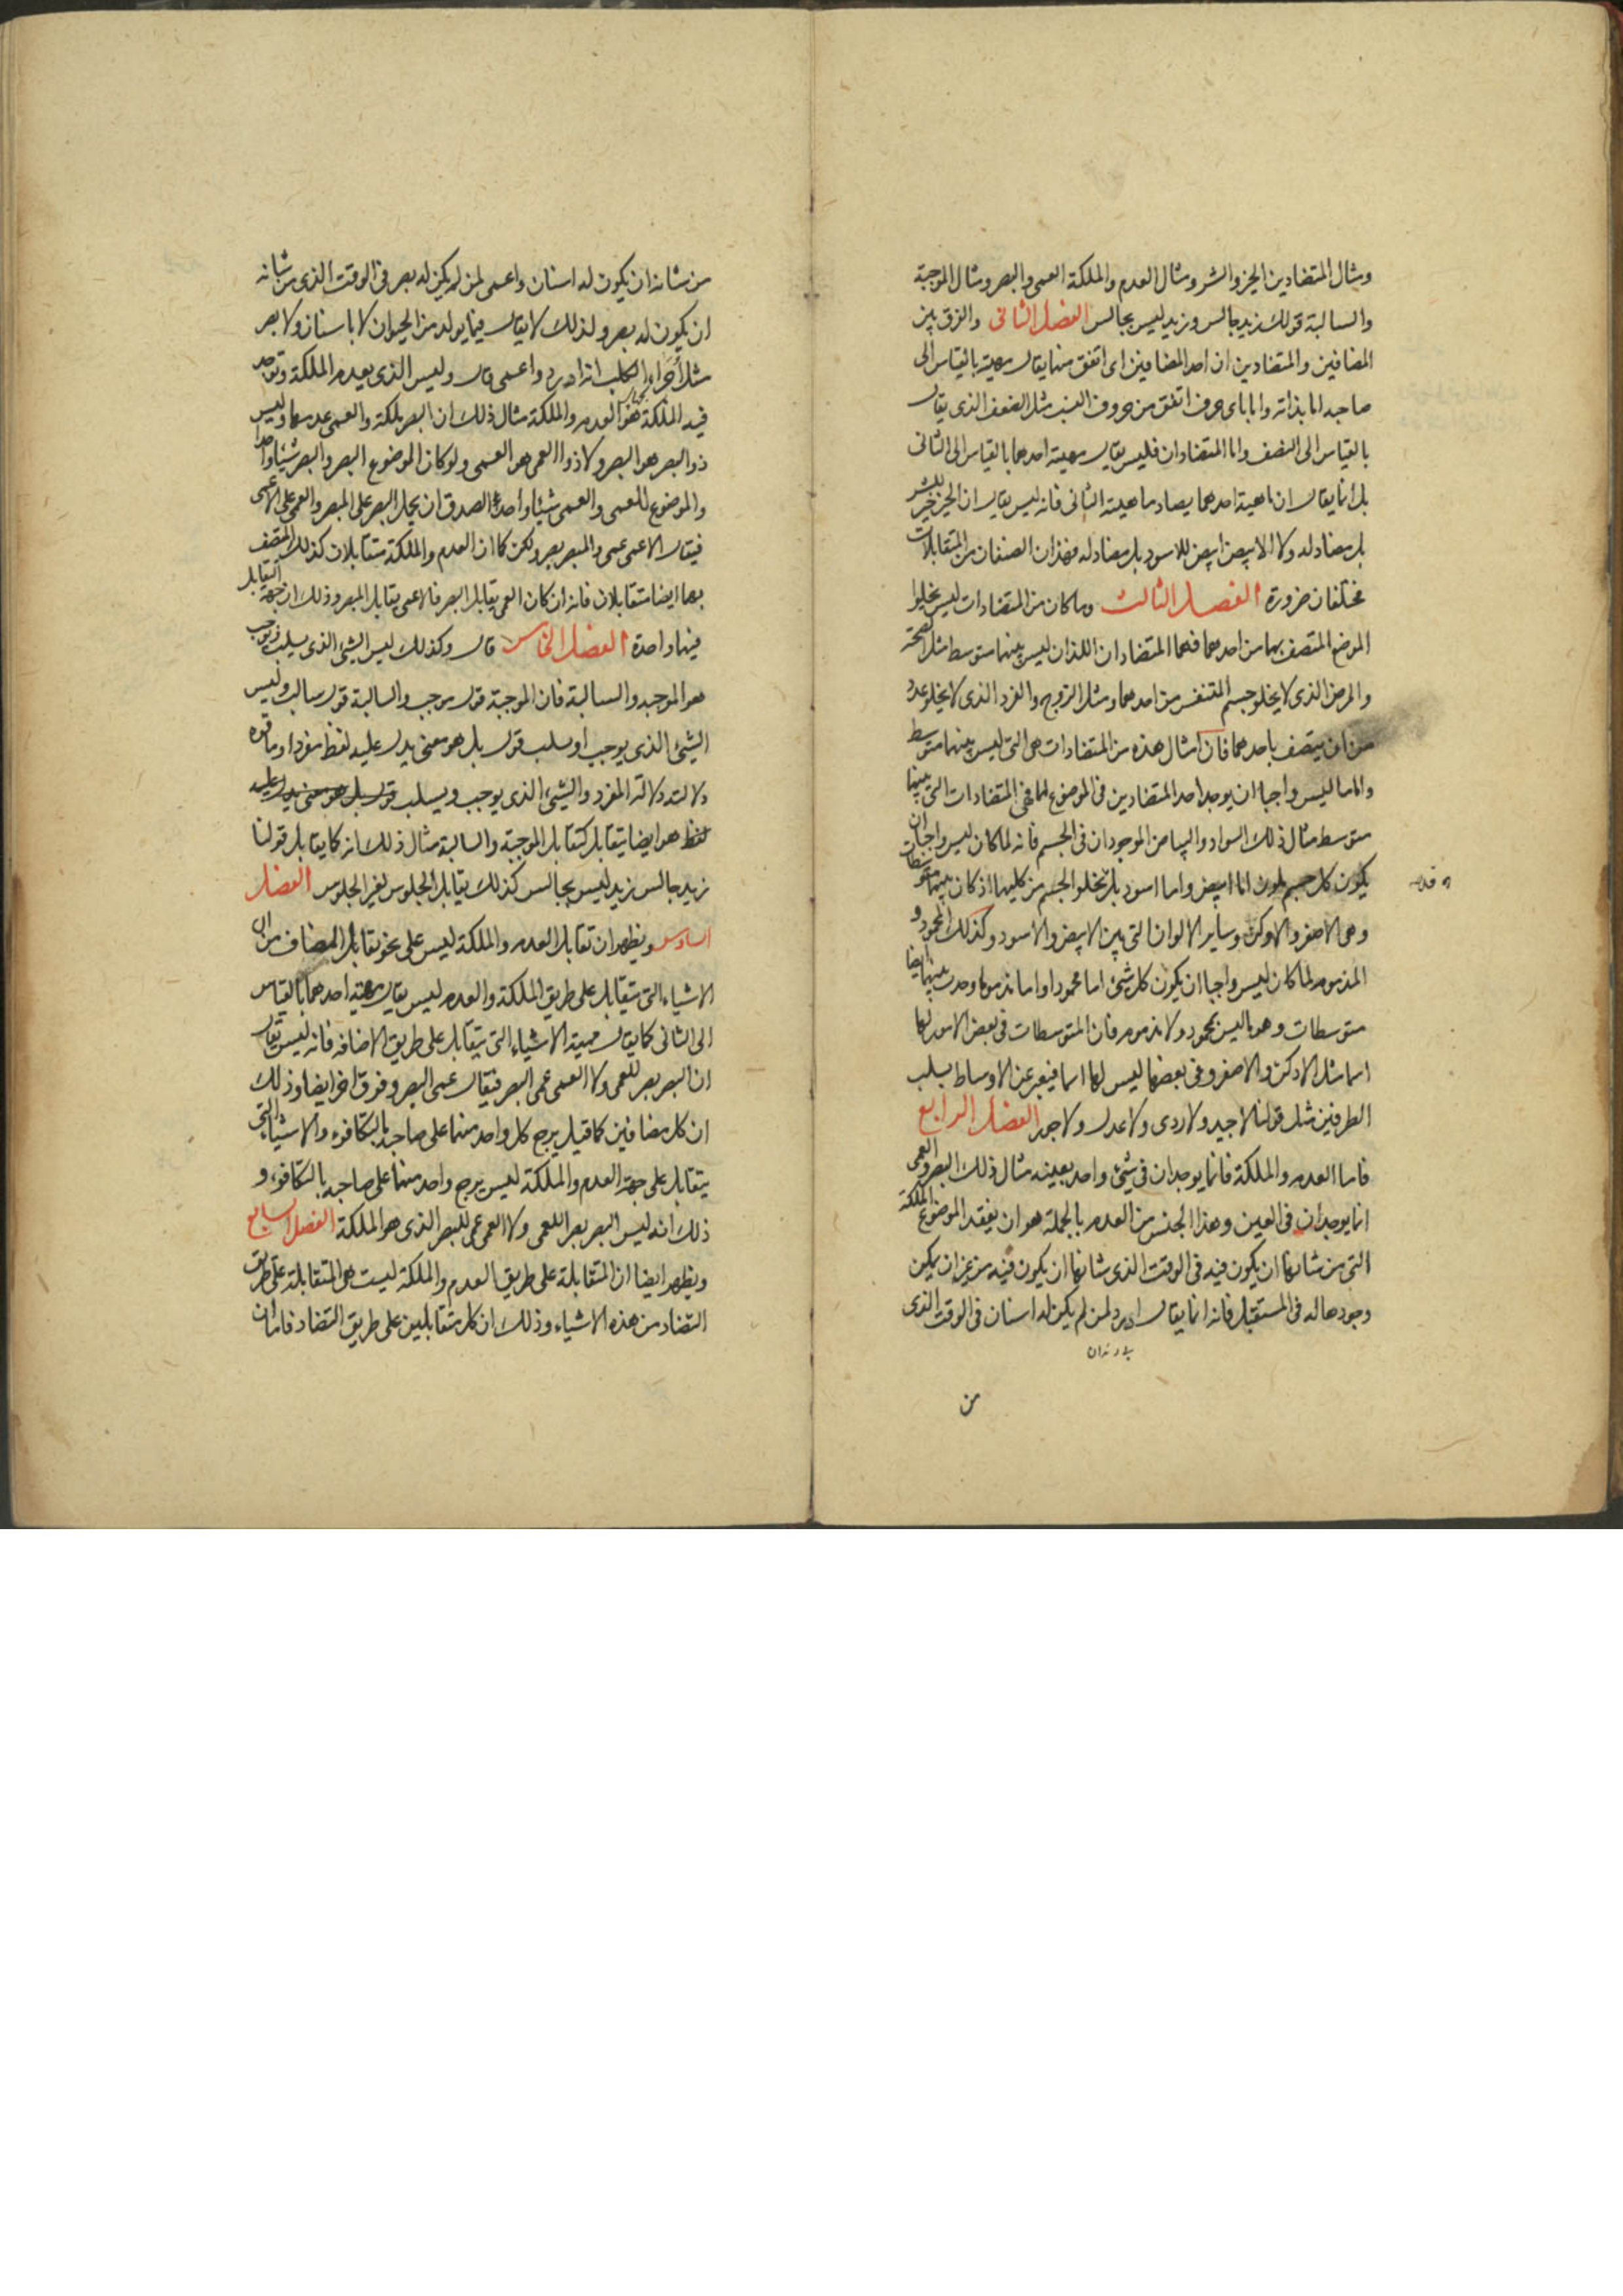 ومثال المتضادين الخير والشر ومثال العدم والملكة العمى والبصر ومثال الموجبة
والسالبة قولك زيد جالس وزيد ليس بجالس الفصل الثانى والفرق بين
المضافين والمتضادين ان احد المضافين اى اتفق منها يقال مهيته بالقياس الى
صاحبه اما بذاته واما باى حرف اتفق من حروف النسب مثل الضعف الذى يقال
بالقياس الى النصف واما المتضادان فليس يقال مهيته احدهما بالقياس الى الثانى
بل انما يقال ان ماهية احدهما يضاد ماهية الثانى فانه ليس يقال ان الخير خير للشر
بل مضاد له ولا الابيض ابيض للاسود بل مضاد له فهذان الصنفان من المتقابلات
مختلفان ضرورة الفصل الثالث وما كان من المتضادات ليس يخلوا
الموضع المتصف بهما من احدهما فهما المتضادان اللذان ليس بينهما متوسط مثل الصحة
والمرض الذى لا يخلو جسم المتنفس من احدهما ومثل الزوج والفرد الذى لا يخلو عدد
من ان يتصف باحدهما فان امثال هذه من المتضادات هى التى ليس بينهما متوسط
واما ما ليس واجبا ان يوجد احد المتضادين فى الموضوع لهما فهى المتضادات التى بينهما
متوسط مثال ذلك السواد والبياض الموجودان فى الجسم فانه لما كان ليس واجبا ان
يكون كل جسم ملون اما ابيض واما اسود بل تخلو الجسم من كليهما اذ كان بينهما متوسطات
وهى الاصفر والادكن وساير الالوان التى بين الابيض والاسود وكذلك المحمود و
المذموم لما كان ليس واجبا ان يكون كل شئ اما محمودا واما مذموما وجدت بينهما ايضا
متوسطات وهو ما ليس بمحمود ولا مذموم فان المتوسطات فى بعض الامور لها
اسما مثل الادكن والاصفر وفى بعضها ليس لها اسما فيعبر عن الاوساط بسلب
الطرفين مثل قولنا لا جيد ولا ردى ولا عدل ولا جور الفصل الرابع
فاما العدم والملكة فانما يوجدان فى شئ واحد بعينه مثال ذلك البصر والعمى
انما يوجدان فى العين وهذا الجنس من العدم بالجملة هو ان يفقد الموضوع الملكة
التى من شانها ان يكون فيه فى الوقت الذى شانها ان يكون فيه من غير ان يمكن
وجودها له فى المستقبل فانه انما يقال ادرد لمن لم يكن له اسنان فى الوقت الذى
من
من شانه ان يكون له اسنان واعمى لمن لم يكن له بصر فى الوقت الذى من شانه
ان يكون له بصر ولذلك لا يقال فيما يولد من الحيوان لا باسنان ولا بصر
مثل اجراء الكلب انه ادرد واعمى قال وليس الذى يعدم الملكة وتوجد
فيه الملكة هو العدم والملكة مثال ذلك ان البصر ملكة والعمى عدمها وليس
ذو البصر هو البصر ولا ذو العمى هو العمى ولو كان الموضوع البصر والبصر شيئا واحدا
والموضوع للعمى والعمى شيئا واحدا لصدق ان يحمل البصر على المبصر والعمى على الاعمى
فيقال الاعمى عمى والمبصر بصر ولكن كما ان العدم والملكة متقابلان كذلك المتصف
بهما ايضا متقابلان فانه ان كان العمى يقابل البصر فالاعمى يقابل المبصر وذلك ان جهة التقابل
فيهما واحدة الفصل الخامس قال وكذلك ليس الشئ الذى يسلب ويوجب
هو الموجبه والسالبة فان الموجبة قول موجب والسالبة قول سالب وليس
الشئ الذى يوجب او يسلب قول بل هو معنى يدل عليه لفظ مفرد او ما قوة
دلالته دلالة المفرد والشئ الذى يوجب ويسلب قول بل هو معنى يدل عليه
لفظ هو ايضا يتقابل كتقابل الموجبة والسالبة مثال ذلك انه كما يقابل قولنا
زيد جالس زيد ليس بجالس كذلك يقابل الجلوس لغير الجلوس الفصل
السادس ويظهر ان تقابل العدم والملكة ليس على نحو تقابل المضاف من ان
الاشياء التى تتقابل على طريق الملكة والعدم ليس يقال مهيته احدهما بالقياس
الى الثانى كما يقال مهية الاشياء التى يتقابل على طريق الاضافه فانه ليس يقال
ان البصر بصر للعمى ولا العمى عمى البصر فيقال عمى البصر وفرق اخر ايضا وذلك
ان كل مضافين كما قيل يرجع كل واحد منهما على صاحبه بالتكافوء والاشياء التى
يتقابل على جهة العدم والملكة ليس يرجع واحد منهما على صاحبه بالتكافوء و
ذلك انه ليس البصر بصرا للعمى ولا العمى عمى للبصر الذى هو الملكة الفصل السابع
ويظهر ايضا ان المتقابلة على طريق العدم والملكة ليست هى المتقابلة على طريق
التضاد من هذه الاشياء وذلك ان كل متقابلين على طريق التضاد فاما ان